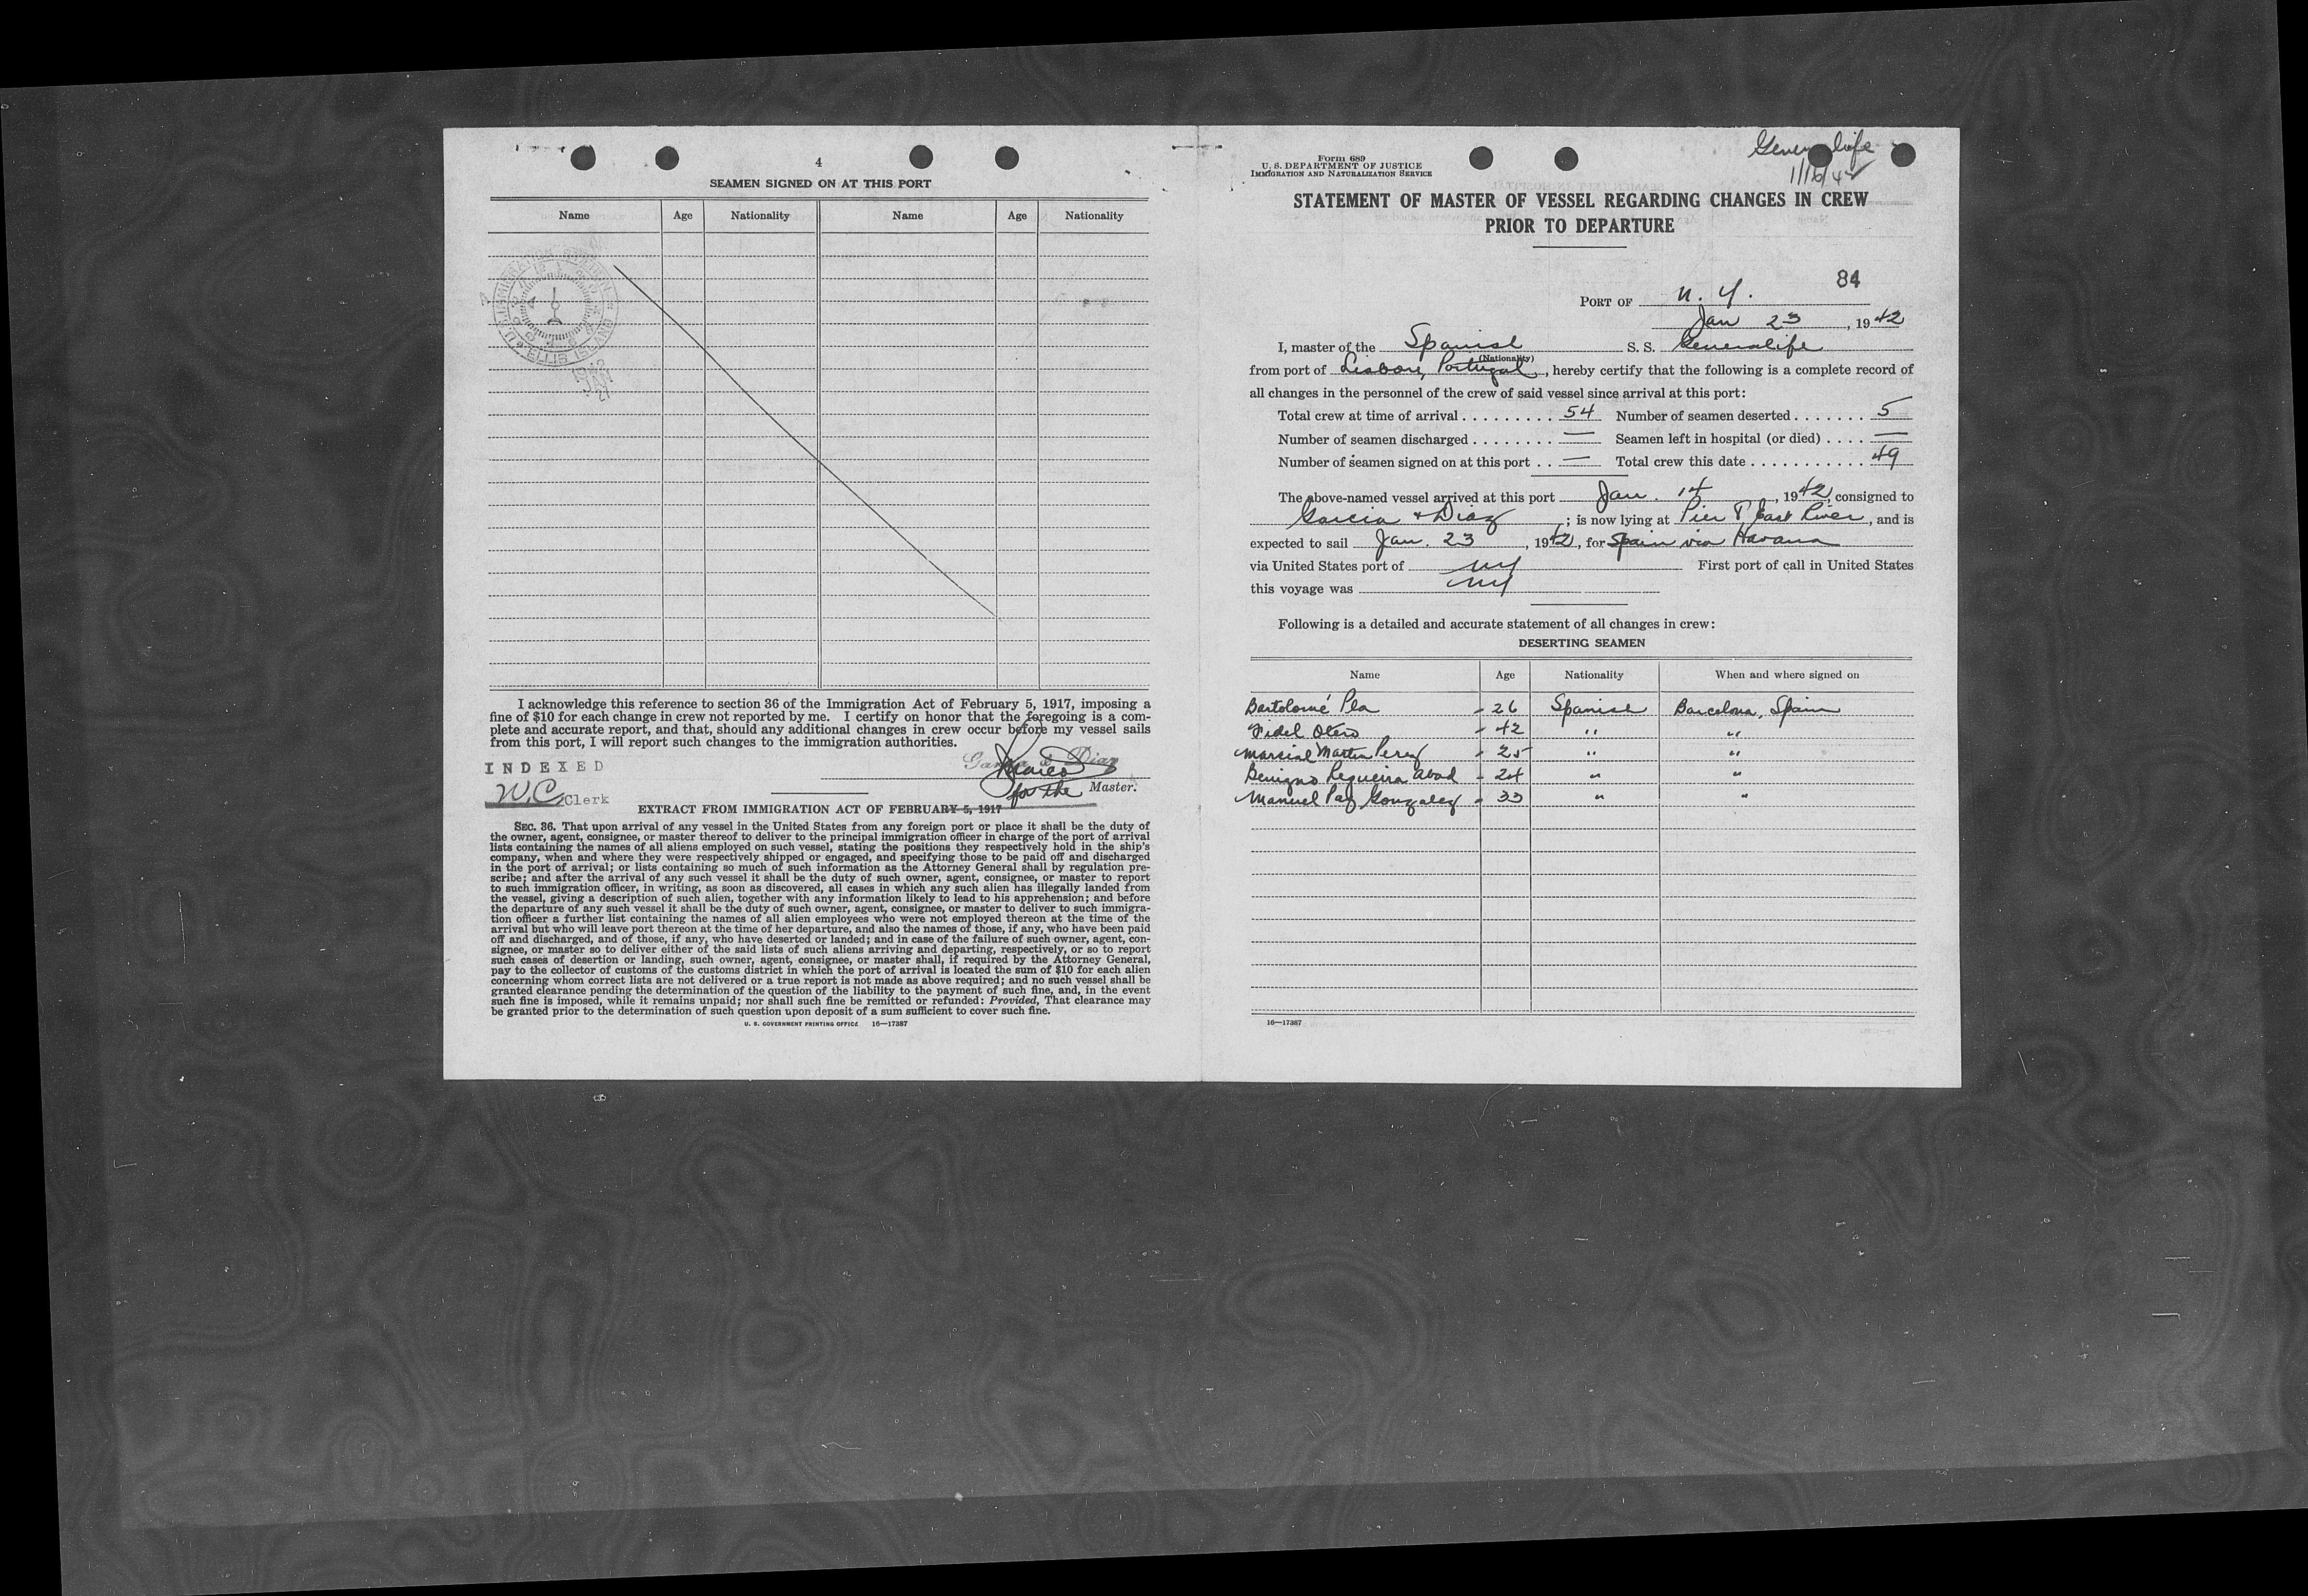 4
SEAMEN SIGNED ON AT THIS PORT
Name Age Nationality Name Age Nationality
U.S. IMMIGRATION STATION
ELLIS ISLAND
I acknowledge this reference to section 36 of the Immigration Act of February 5, 1917, imposing a
fine of $10 for each change in crew not reported by me. I certify on honor that the foregoing is a com-
plete and accurate report, and that, should any additional changes in crew occur before my vessel sails
from this port, I will report such changes to the immigration authorities.
Garcia & Diaz
INDEXED
W.C. Clerk
for the Master.
EXTRACT FROM IMMIGRATION ACT OF FEBRUARY 5, 1917
SEC. 36. That upon arrival of any vessel in the United States from any foreign port or place it shall be the duty of
the owner, agent, consignee, or master thereof to deliver to the principal immigration officer in charge of the port of arrival
lists containing the names of all aliens employed on such vessel, stating the positions they respectively hold in the ship's
company, when and where they were respectively shipped or engaged, and specifying those to be paid off and discharged
in the port of arrival; or lists containing so much of such information as the Attorney General shall by regulation pre-
scribe; and after the arrival of any such vessel it shall be the duty of such owner, agent, consignee, or master to report
to such immigration officer, in writing, as soon as discovered, all cases in which any such alien has illegally landed from
the vessel, giving a description of such alien, together with any information likely to lead to his apprehension; and before
the departure of any such vessel it shall be the duty of such owner, agent, consignee, or master to deliver to such immigra-
tion officer a further list containing the names of all alien employees who were not employed thereon at the time of the
arrival but who will leave port thereon at the time of her departure, and also the names of those, if any, who have been paid
off and discharged, and of those, if any, who have deserted or landed; and in case of the failure of such owner, agent, con-
signee, or master so to deliver either of the said lists of such aliens arriving and departing, respectively, or so to report
such cases of desertion or landing, such owner, agent, consignee, or master shall, if required by the Attorney General,
pay to the collector of customs of the customs district in which the port of arrival is located the sum of $10 for each alien
concerning whom correct lists are not delivered or a true report is not made as above required; and no such vessel shall be
granted clearance pending the determination of the question of the liability to the payment of such fine, and, in the event
such fine is imposed, while it remains unpaid; nor shall such fine be remitted or refunded: Provided, That clearance may
be granted prior to the determination of such question upon deposit of a sum sufficient to cover such fine.
U. S. GOVERNMENT PRINTING OFFICE 16—17387
Generalife
1/16/42
Form 689
U. S. DEPARTMENT OF JUSTICE
IMMIGRATION AND NATURALIZATION SERVICE
STATEMENT OF MASTER OF VESSEL REGARDING CHANGES IN CREW
PRIOR TO DEPARTURE
84
PORT OF N. Y.
Jan 23, 1942
I, master of the Spanish S. S. Generalife
(Nationality)
from port of Lisbon, Portugal, hereby certify that the following is a complete record of
all changes in the personnel of the crew of said vessel since arrival at this port:
Total crew at time of arrival . . . . . . . . . 54 Number of seamen deserted . . . . . . . 5
Number of seamen discharged . . . . . . . . — Seamen left in hospital (or died) . . . . —
Number of seamen signed on at this port . . — Total crew this date . . . . . . . . . . . 49
The above-named vessel arrived at this port Jan. 14, 1942, consigned to
Garcia & Diaz; is now lying at Pier 8, East River, and is
expected to sail Jan. 23, 1942, for Spain via Havana
via United States port of NY First port of call in United States
this voyage was NY
Following is a detailed and accurate statement of all changes in crew:
DESERTING SEAMEN
Name Age Nationality When and where signed on
Bartolomé Pla - 26 Spanish Barcelona, Spain
Fidel Otero - 42 " "
Marcial Martin Perez - 25 " "
Benigno Regueira Abad - 24 " "
Manuel Paz Gonzalez - 33 " "
16—17387